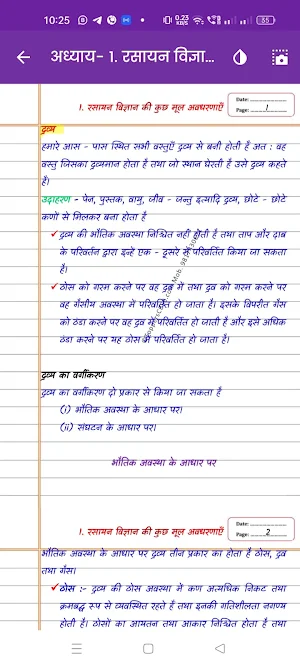 10:25
0.23 KB/S
55
अध्याय- 1. रसायन विज्ञा...
1. रसायन विज्ञान की कुछ मूल अवधारणाएँ
Date:
Page: 1
द्रव्य
हमारे आस - पास स्थित सभी वस्तुएँ द्रव्य से बनी होती हैं अत : वह
वस्तु जिसका द्रव्यमान होता है तथा जो स्थान घेरती है उसे द्रव्य कहते
हैं।
उदाहरण - पेन, पुस्तक, वायु, जीव - जन्तु इत्यादि द्रव्य, छोटे - छोटे
कणों से मिलकर बना होता है
✓ द्रव्य की भौतिक अवस्था निश्चित नहीं होती हैं तथा ताप और दाब
के परिवर्तन द्वारा इन्हें एक - दूसरे में परिवर्तित किया जा सकता
है।
✓ ठोस को गरम करने पर वह द्रव में तथा द्रव को गरम करने पर
वह गैसीय अवस्था में परिवर्तित हो जाता हैं। इसके विपरीत गैस
को ठंडा करने पर वह द्रव में परिवर्तित हो जाती है और इसे अधिक
ठंडा करने पर यह ठोस में परिवर्तित हो जाता हैं।
द्रव्य का वर्गीकरण
द्रव्य का वर्गीकरण दो प्रकार से किया जा सकता है
(i) भौतिक अवस्था के आधार पर।
(ii) संघटन के आधार पर।
भौतिक अवस्था के आधार पर
1. रसायन विज्ञान की कुछ मूल अवधारणाएँ
Date:
Page: 2
भौतिक अवस्था के आधार पर द्रव्य तीन प्रकार का होता है ठोस, द्रव
तथा गैस।
✓ ठोस :- द्रव्य की ठोस अवस्था में कण अत्यधिक निकट तथा
क्रमबद्ध रूप से व्यवस्थित रहते हैं तथा इनकी गतिशीलता नगण्य
होती हैं। ठोसों का आयतन तथा आकार निश्चित होता हैं तथा